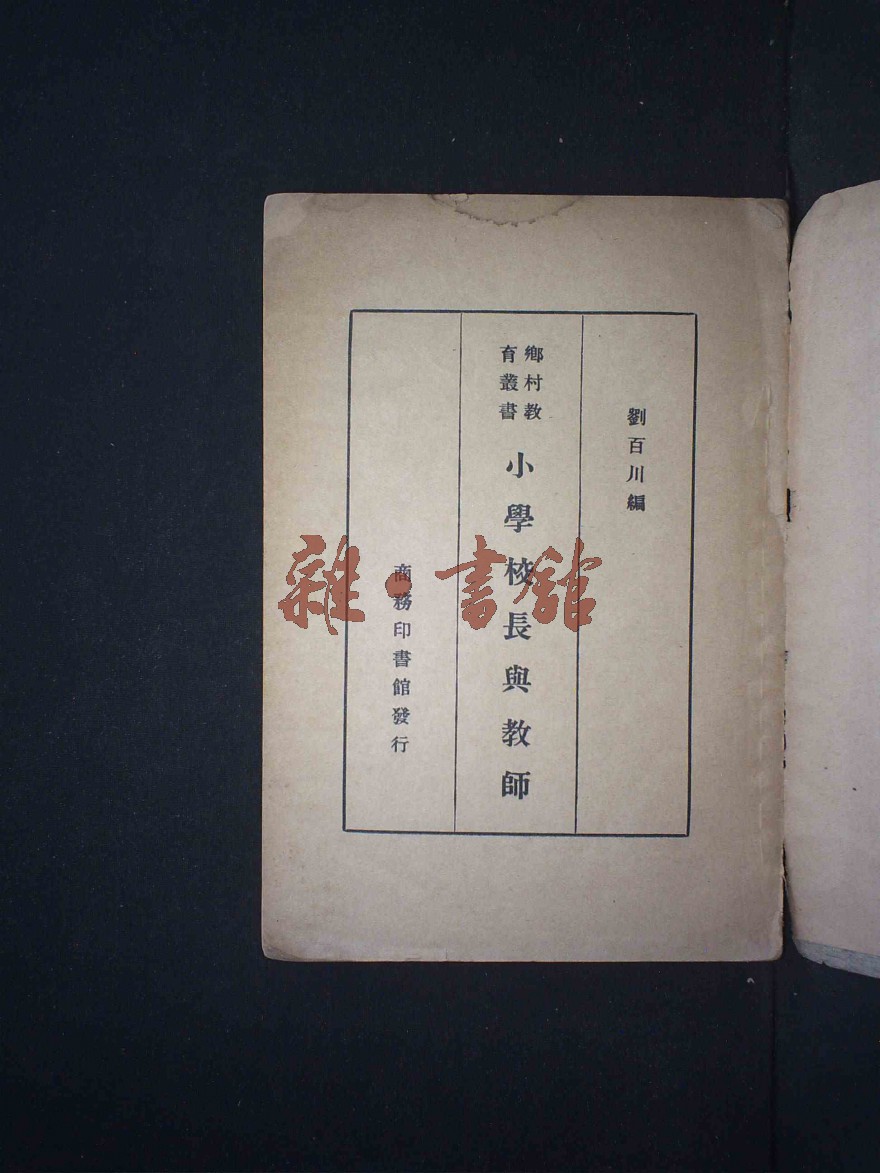 劉百川編
鄉村教
育叢書
小學校長與教師
商務印書館發行
雜·書館